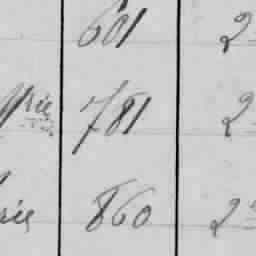 601 2
rie 781 2
rie 860 2